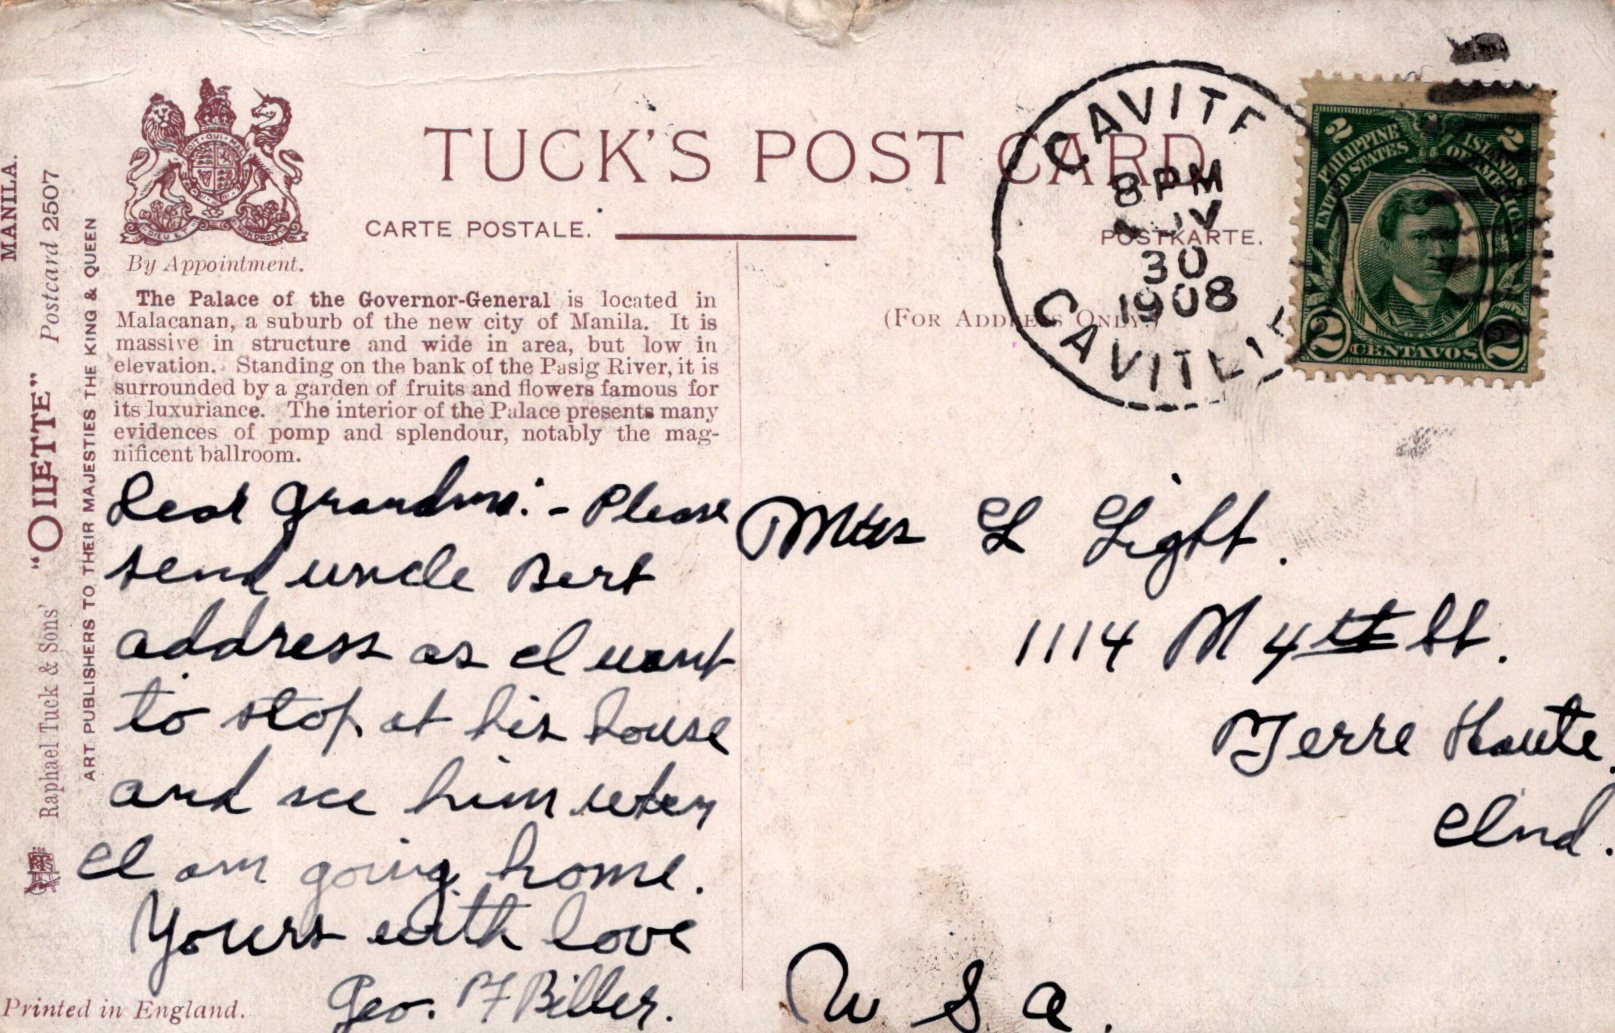 TUCK'S POST CARD
CARTE POSTALE.
POSTKARTE.
(FOR ADDRESS ONLY.)
By Appointment.
The Palace of the Governor-General is located in
Malacanan, a suburb of the new city of Manila. It is
massive in structure and wide in area, but low in
elevation. Standing on the bank of the Pasig River, it is
surrounded by a garden of fruits and flowers famous for
its luxuriance. The interior of the Palace presents many
evidences of pomp and splendour, notably the mag-
nificent ballroom.
Dear Grandma:- Please
send uncle Bert
address as I want
to stop at his house
and see him when
I am going home.
Yours with love
Geo. F Biller.
Mrs L Light.
1114 N 4th St.
Terre Haute.
Ind.
U S A.
CAVITE
8 PM
30
1908
CAVITE
PHILIPPINE ISLANDS
UNITED STATES OF AMERICA
2 2
2 CENTAVOS 2
MANILA.
Raphael Tuck & Sons' "OILETTE" Postcard 2507
ART PUBLISHERS TO THEIR MAJESTIES THE KING & QUEEN
Printed in England.